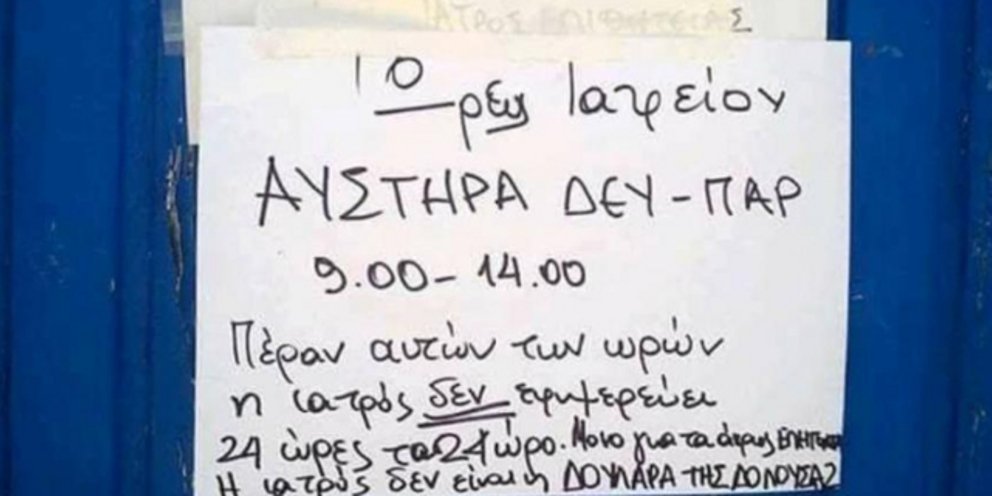 ΙΑΤΡΟΣ
Ώρες Ιατρείου
ΑΥΣΤΗΡΑ ΔΕΥ-ΠΑΡ
9.00-14.00
Πέραν αυτών των ωρών
η ιατρός δεν εφημερεύει
24 ώρες το 24ωρο. Μονο για τα άκρως
Η ιατρός δεν είναι η ΔΟΥΛΑΡΑ ΤΗΣ ΔΟΝΟΥΣΑΣ